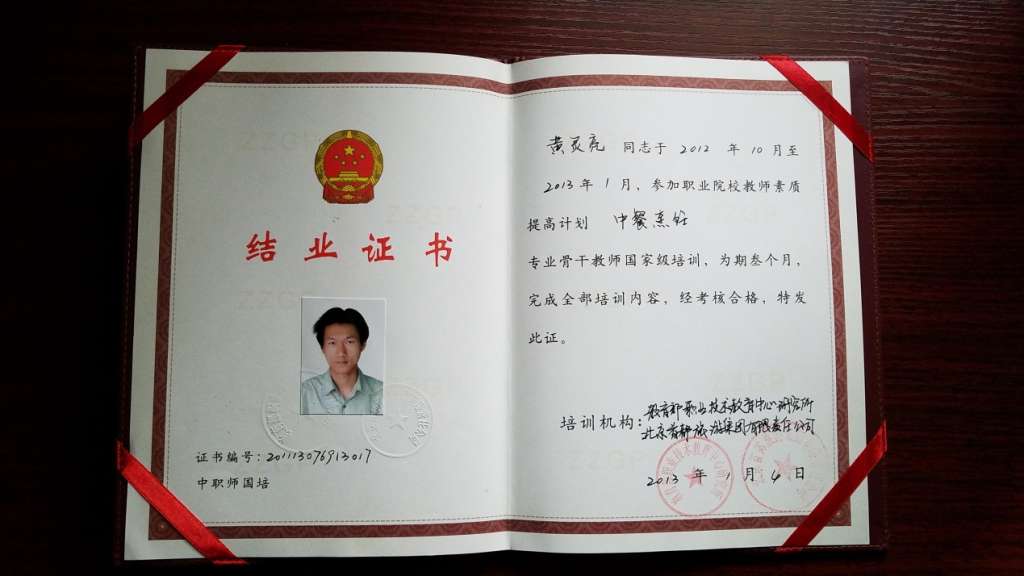 结业证书
证书编号：201113076913017
中职师国培
黄灵亮 同志于 2012 年 10 月至
2013 年 1 月，参加职业院校教师素质
提高计划 中餐烹饪
专业骨干教师国家级培训，为期叁个月，
完成全部培训内容，经考核合格，特发
此证。
培训机构：教育部职业技术教育中心研究所
北京首都旅游集团有限责任公司
2013 年 1 月 4 日
ZZGP
ZZGP
ZZGP